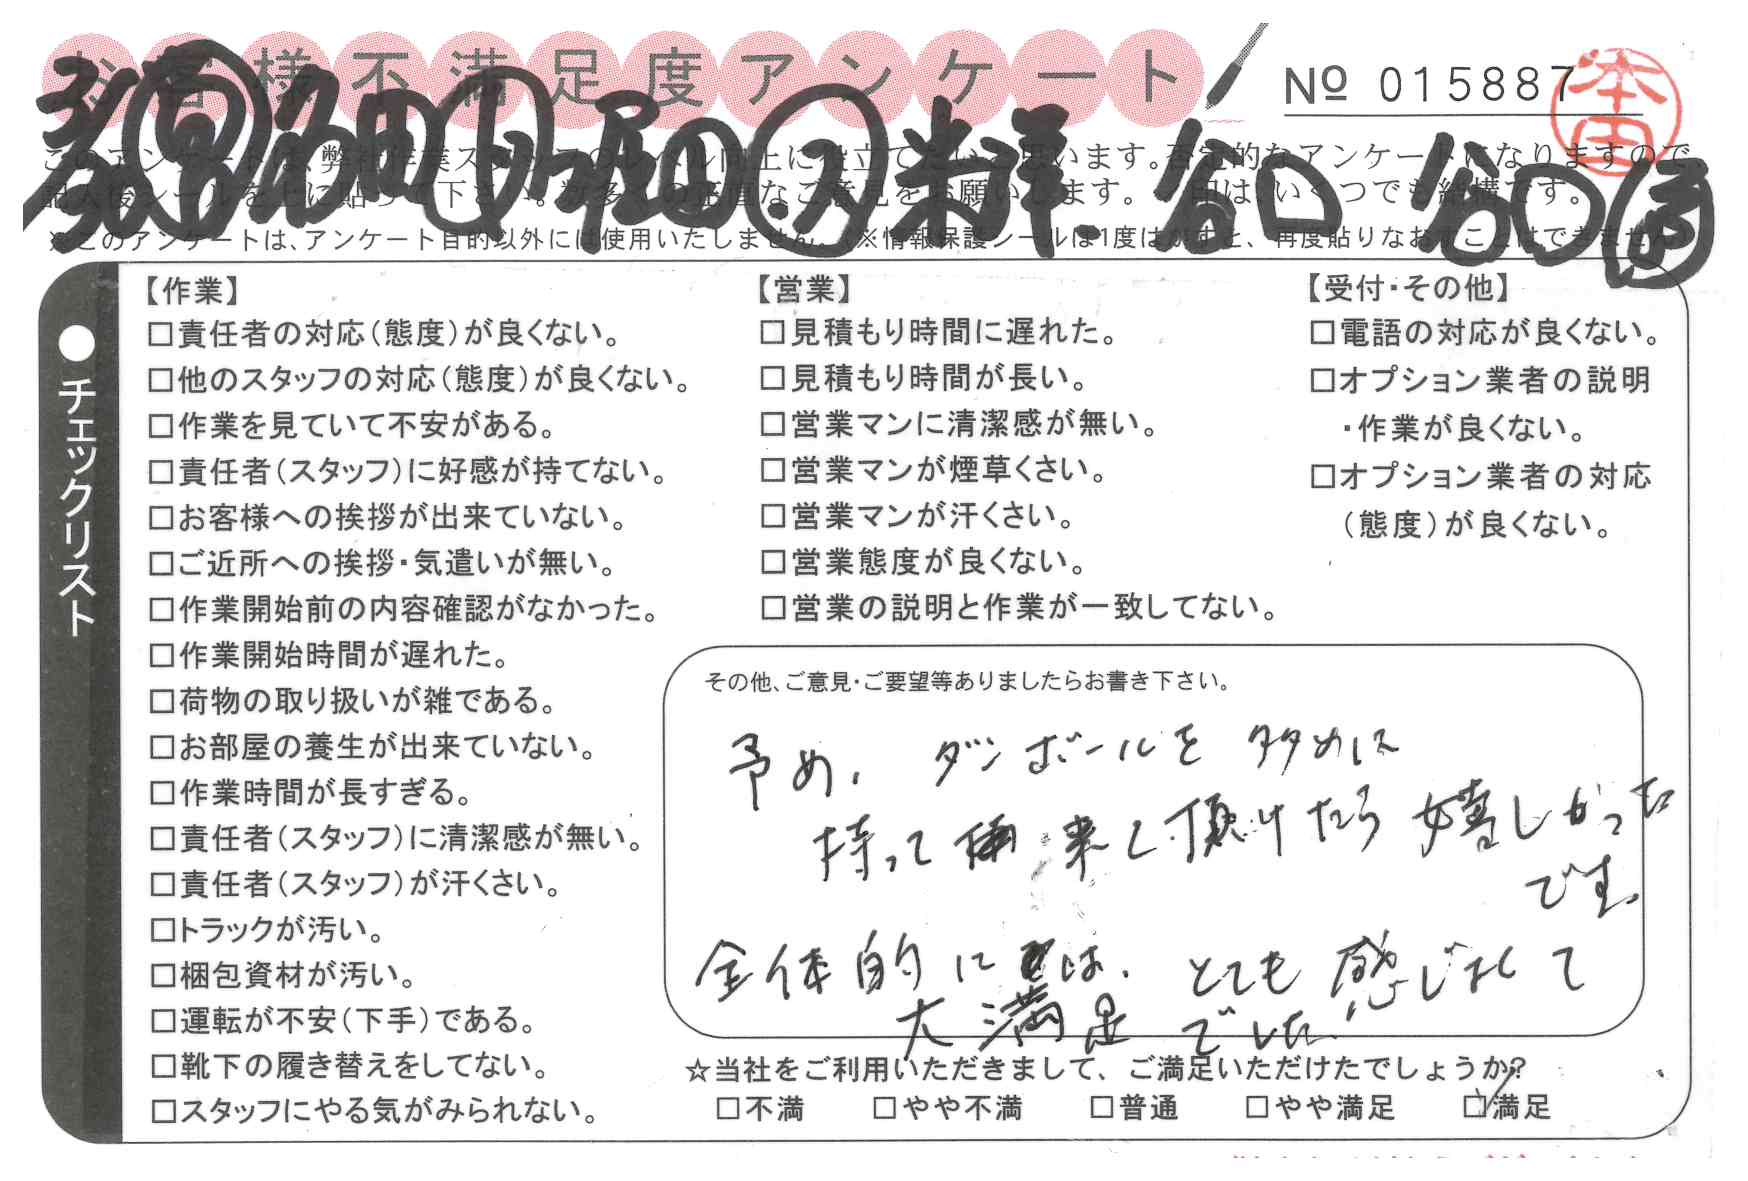 お客様不満足度アンケート
№ 015887
本田
このアンケートは、弊社作業スタッフのレベル向上に役立てたいと思います。否定的なアンケートになりますので
記入後シールを上に貼って下さい。数多くの正直なご意見をお願いします。 印は、いくつでも結構です。
※このアンケートは、アンケート目的以外には使用いたしません。(※情報保護シールは1度はがすと、再度貼りなおすことはできません)
●チェックリスト
【作業】
□責任者の対応(態度)が良くない。
□他のスタッフの対応(態度)が良くない。
□作業を見ていて不安がある。
□責任者(スタッフ)に好感が持てない。
□お客様への挨拶が出来ていない。
□ご近所への挨拶・気遣いが無い。
□作業開始前の内容確認がなかった。
□作業開始時間が遅れた。
□荷物の取り扱いが雑である。
□お部屋の養生が出来ていない。
□作業時間が長すぎる。
□責任者(スタッフ)に清潔感が無い。
□責任者(スタッフ)が汗くさい。
□トラックが汚い。
□梱包資材が汚い。
□運転が不安(下手)である。
□靴下の履き替えをしてない。
□スタッフにやる気がみられない。
【営業】
□見積もり時間に遅れた。
□見積もり時間が長い。
□営業マンに清潔感が無い。
□営業マンが煙草くさい。
□営業マンが汗くさい。
□営業態度が良くない。
□営業の説明と作業が一致してない。
【受付・その他】
□電語の対応が良くない。
□オプション業者の説明
・作業が良くない。
□オプション業者の対応
(態度)が良くない。
その他、ご意見・ご要望等ありましたらお書き下さい。
予め、ダンボールを多めに
持って来て頂けたら嬉しかった
です。
全体的には、とても感じよくて
大満足でした
☆当社をご利用いただきまして、ご満足いただけたでしょうか?
□不満 □やや不満 □普通 □やや満足 ☑満足